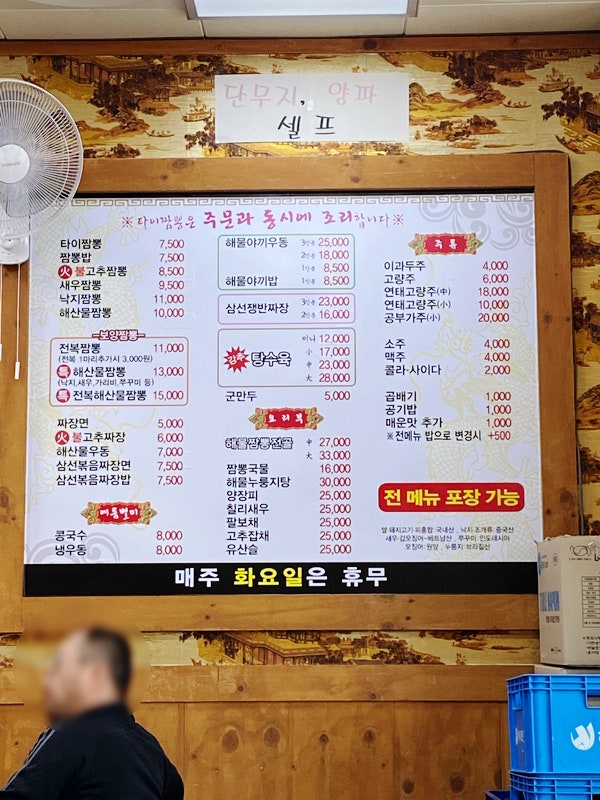 단무지, 양파
셀프
※타이짬뽕은 주문과 동시에 조리합니다※
타이짬뽕 7,500
짬뽕밥 7,500
火 불고추짬뽕 8,500
새우짬뽕 9,500
낙지짬뽕 11,000
해물산짬뽕 10,000
보양짬뽕
전복짬뽕 11,000
(전복 1마리추가시 3,000원)
특 해산물짬뽕 13,000
(낙지,새우,가리비,쭈꾸미 등)
특 전복해산물짬뽕 15,000
짜장면 5,000
火 불고추짜장 6,000
해산물우동 7,000
삼선볶음짜장면 7,500
삼선볶음짜장밥 7,500
여름별미
콩국수 8,000
냉우동 8,000
해물야끼우동 3인분 25,000
2인분 18,000
1인분 8,500
해물야끼밥 1인분 8,500
삼선쟁반짜장 3인분 23,000
2인분 16,000
강추 탕수육 미니 12,000
小 17,000
中 23,000
大 28,000
군만두 5,000
요리부
해물짬뽕전골 中 27,000
大 33,000
짬뽕국물 16,000
해물누룽지탕 30,000
양장피 25,000
칠리새우 25,000
팔보채 25,000
고추잡채 25,000
유산슬 25,000
주류
이과두주 4,000
고량주 6,000
연태고량주(中) 18,000
연태고량주(小) 10,000
공부가주(小) 20,000
소주 4,000
맥주 4,000
콜라·사이다 2,000
곱배기 1,000
공기밥 1,000
매운맛 추가 1,000
※전메뉴 밥으로 변경시 +500
전 메뉴 포장 가능
쌀 돼지고기·피홍합:국내산, 낙지·조개류:중국산
새우·갑오징어-베트남산, 쭈꾸미:인도네시아
오징어:원양, 누룽지:브라질산
매주 화요일은 휴무